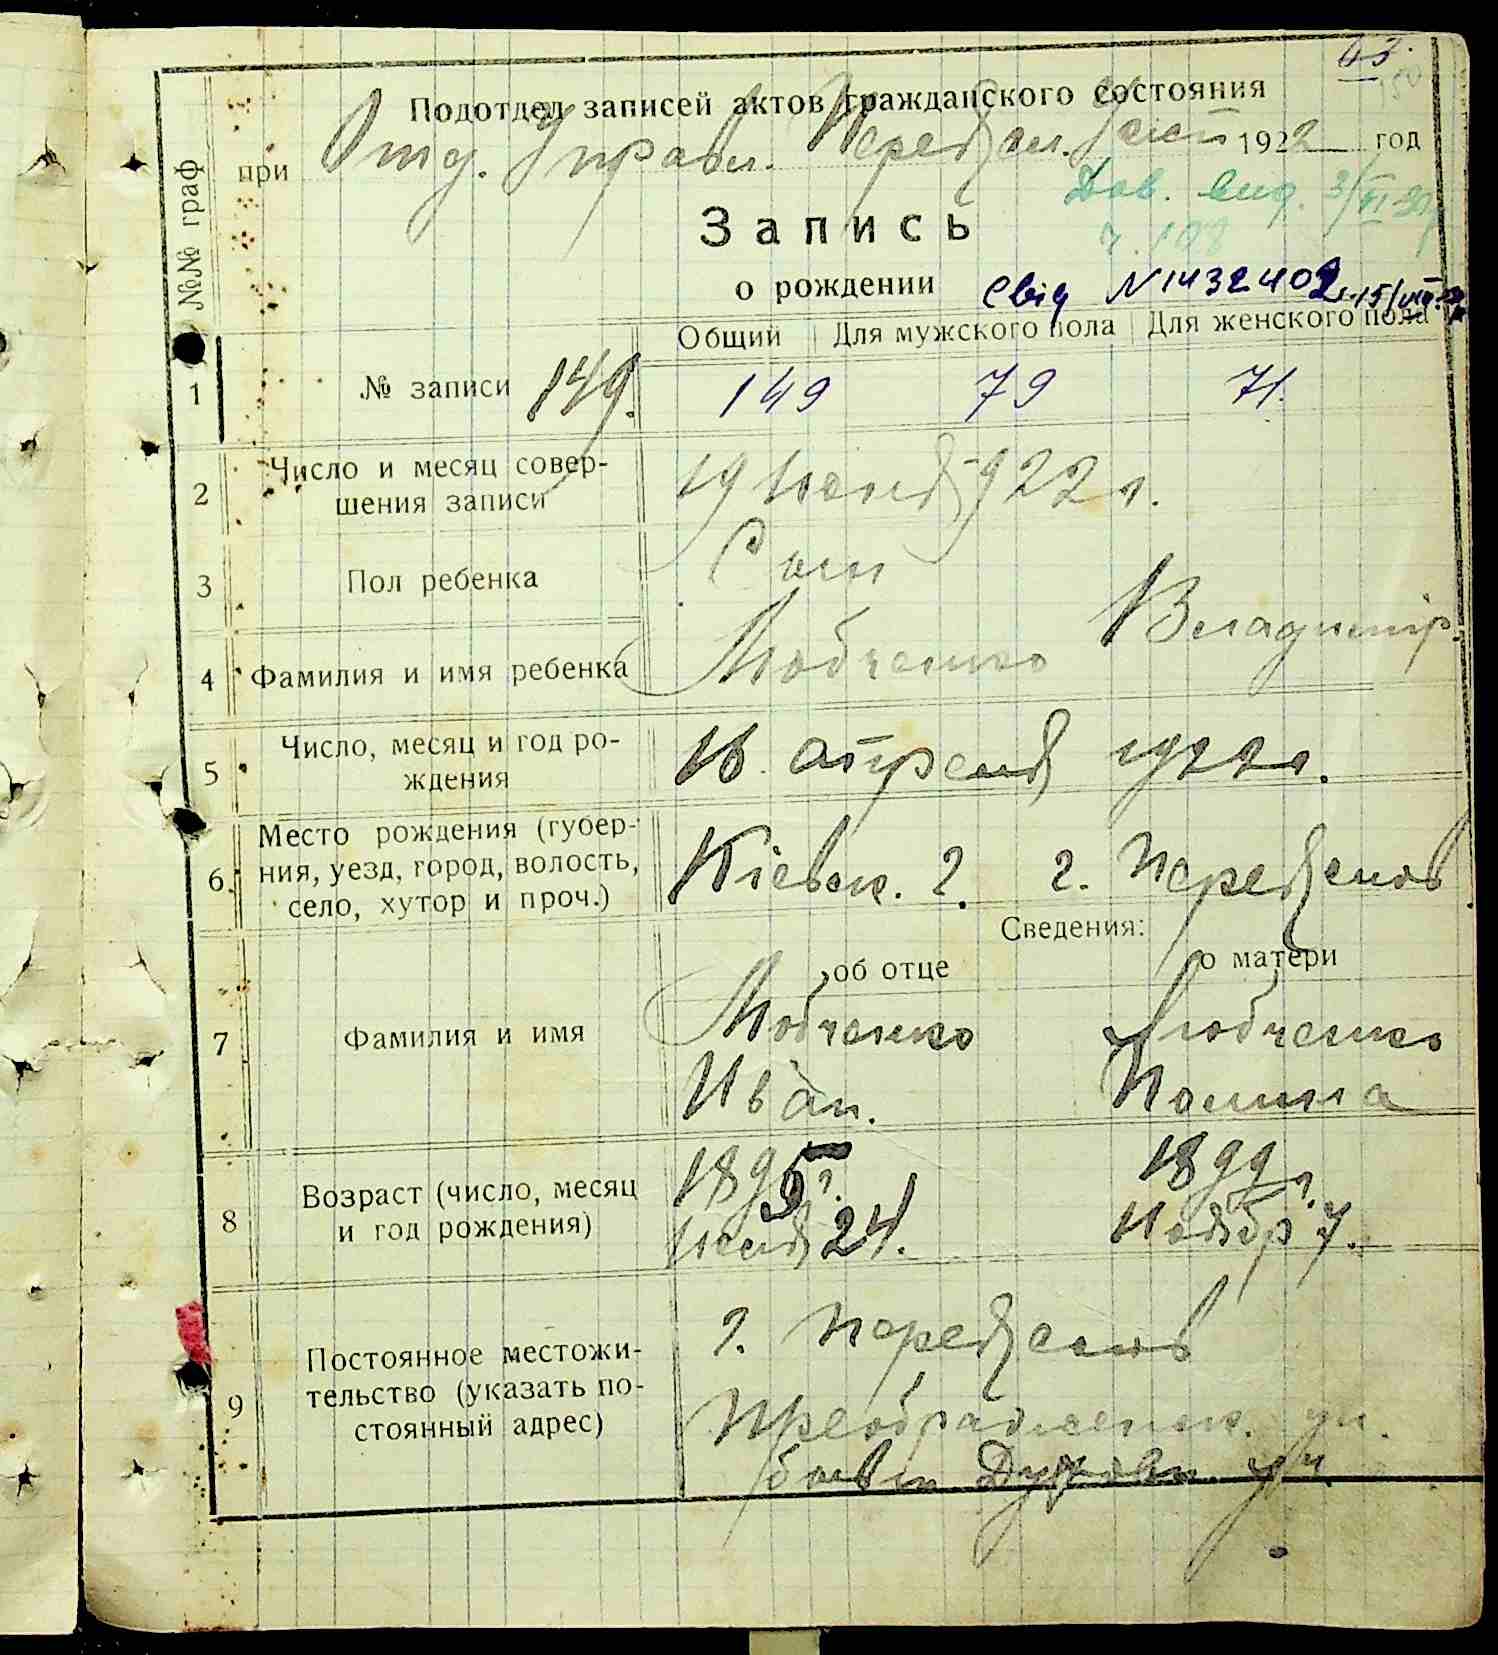 63.
150
Подотдел записей актов гражданского состояния
при Отд. Управл. Переясл. 1922 год
Дов. вид. 3/VI 39
ч. 108
Запись
о рождении Свід N 1432402 15/VIII
№№ граф
Общий Для мужского пола Для женского пола
1 № записи 149. 149 79 71.
2 Число и месяц совер-
шения записи 19 Июля 922 г.
3 Пол ребенка Сын
4 Фамилия и имя ребенка Любченко Владимір.
5 Число, месяц и год ро-
ждения 16 апреля 1922 г.
6. Место рождения (губер-
ния, уезд, город, волость,
село, хутор и проч.) Кіевск. г. г. Переяслов
Сведения:
об отце о матери
7 Фамилия и имя Любченко Любченко
Иван. Полина
8 Возраст (число, месяц
и год рождения) 1895 г. 1899 г.
24. Ноябр 7.
9 Постоянное местожи-
тельство (указать по-
стоянный адрес) г. Переяслов
Преображенск. ул.